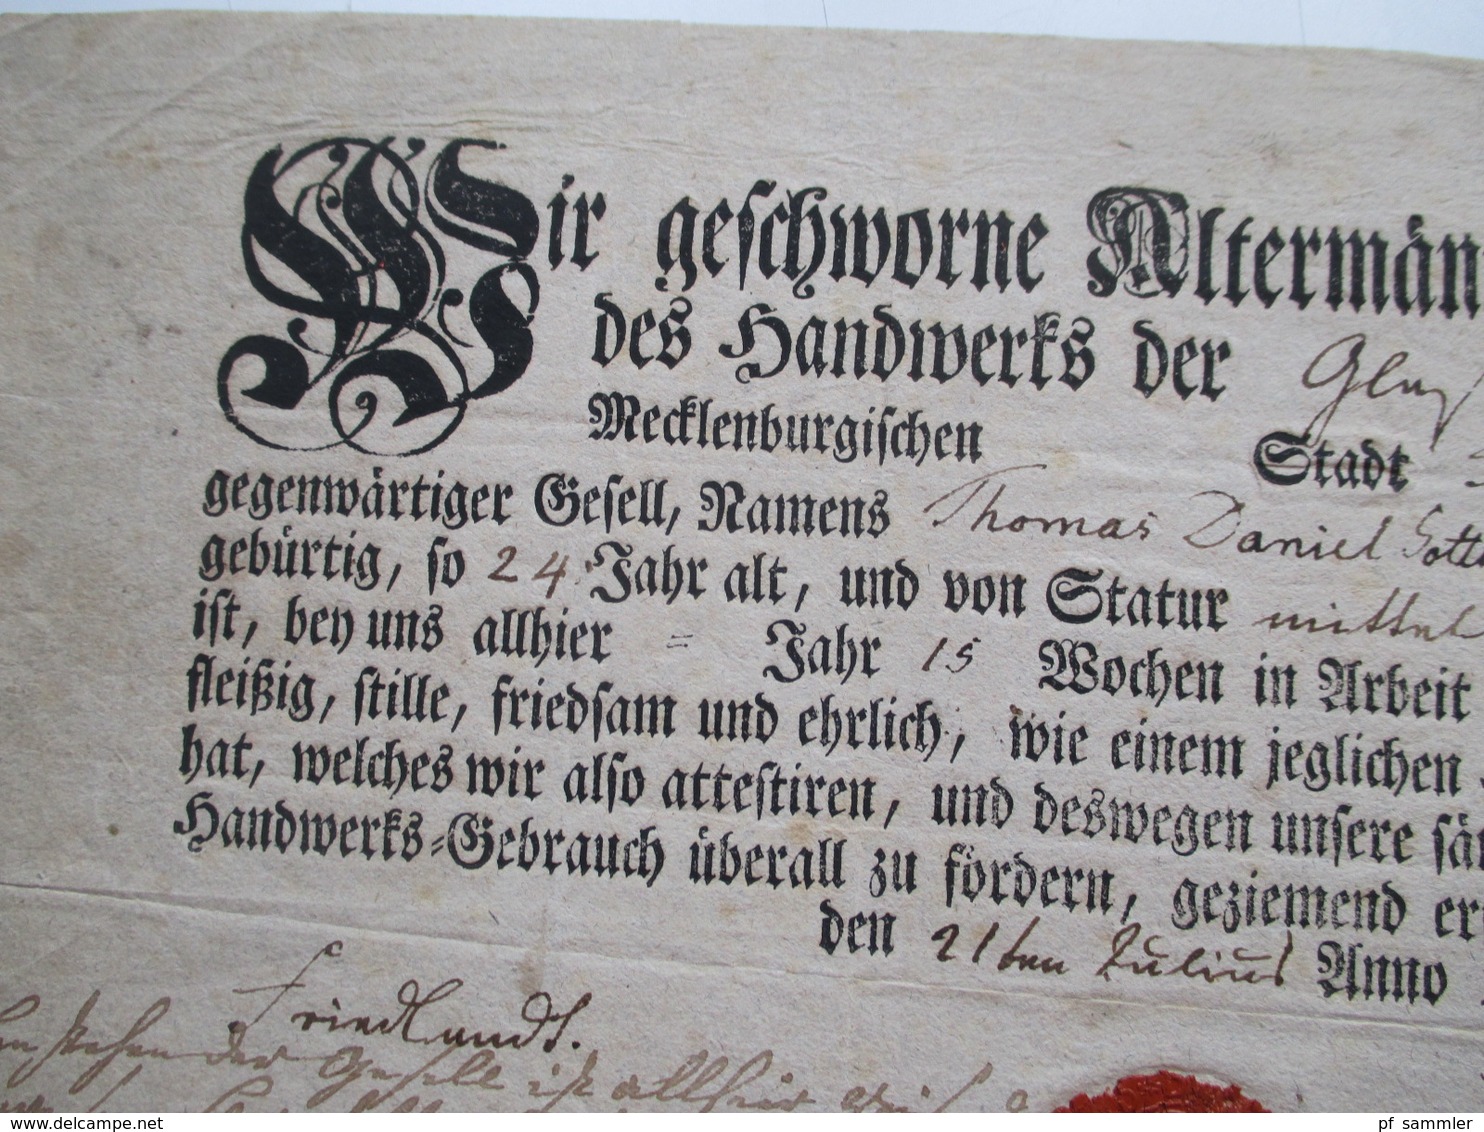 Wir geschworne Altermän
des Handwerks der Glas
Mecklenburgischen Stadt
gegenwärtiger Gesell, Namens Thomas Daniel Gott
gebürtig, so 24 Jahr alt, und von Statur mittel
ist, bey uns allhier = Jahr 15 Wochen in Arbeit
fleißig, stille, friedsam und ehrlich, wie einem jeglichen
hat, welches wir also attestiren, und deswegen unsere sä
Handwerks-Gebrauch überall zu fördern, geziemend er
den 21ten Julius Anno
Friedlandt.
der Gesell ist allhier
www.delcampe.net
pf_sammler